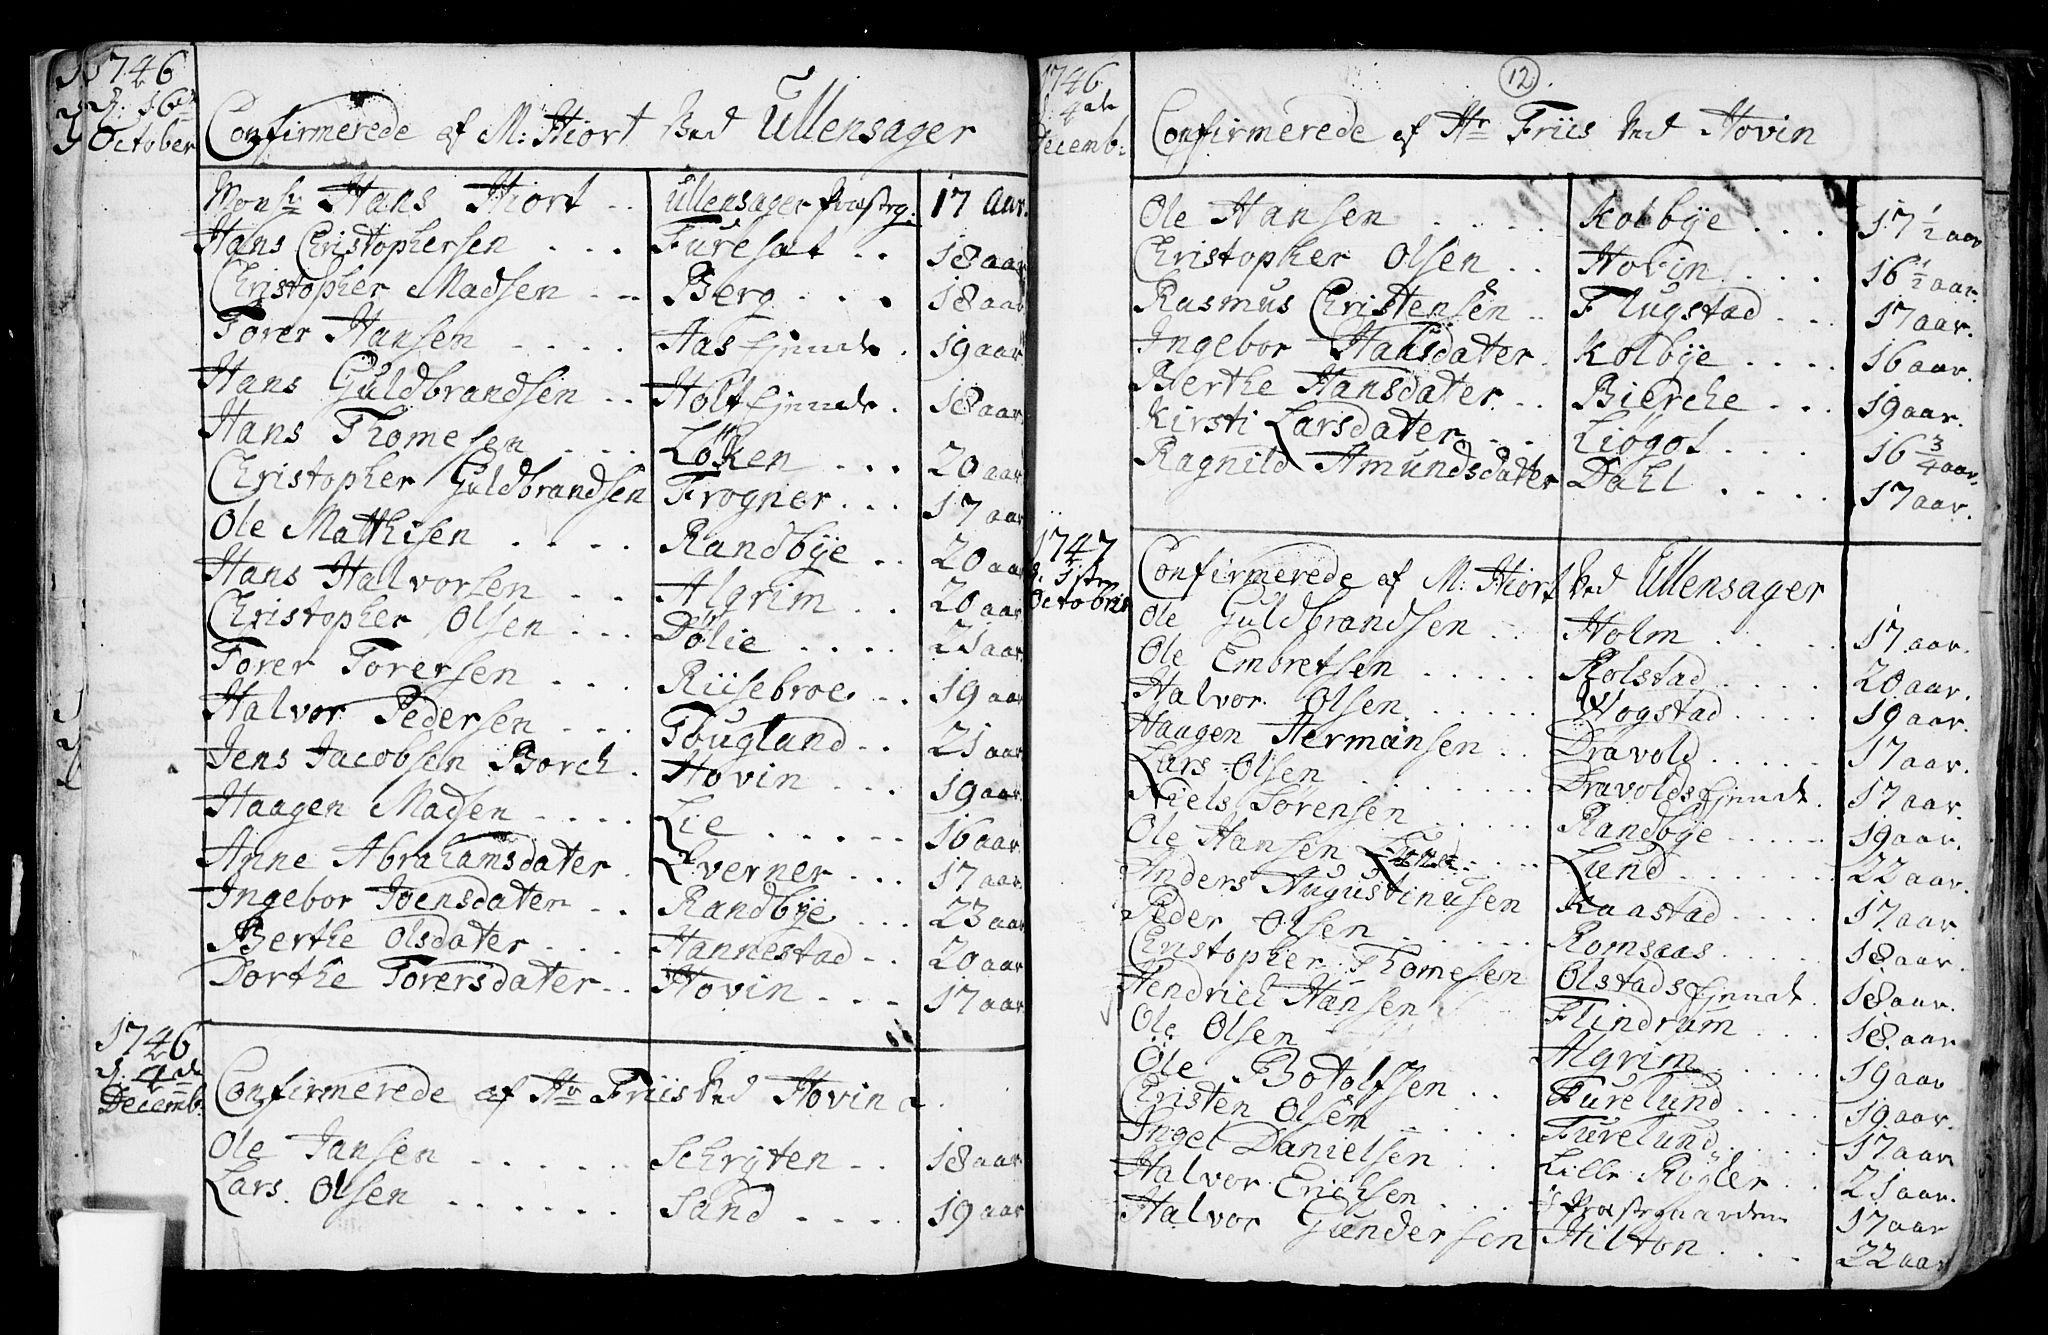 1746
d. 16de
October
Confirmerede af M: Hiort ved Ullensager
Monsr Hans Hiort .. Ullensager Præstg: 17 aar.
Hans Christophersen ... Furesat .. 18 aar
Christopher Madsen .. Berg ... 18 aar
Torer Hansen .... Aas Ejende . 19 aar
Hans Guldbrandsen .. Holt Ejende . 18 aar
Hans Thomesen ... Löken ... 20 aar
Christopher Guldbrandsen Frogner ... 17 aar
Ole Mathisen .... Randbÿe .. 20 aar
Hans Halvorsen .. Algrim .. 20 aar
Christopher Olsen ... Dölie .... 21 aar
Torer Torersen ... Riisebroe .. 19 aar
Halvor Pedersen ... Fougland .. 21 aar
Jens Jacobsen Borch . Hovin ... 19 aar.
Haagen Madsen .... Lie ..... 16 aar
Anne Abrahamsdater . Qverner ... 17 aar
Ingebor Joensdater .. Randbÿe ... 23 aar
Berthe Olsdater .... Hannestad .. 20 aar
Dorthe Torersdater .. Hovin ... 17 aar
1746
d. 4de
Decemb:
Confirmerede af Hr Friis ved Hovin
Ole Jansen ..... Schrÿten .. 18 aar
Lars Olsen ...... Sand .... 19 aar
12
1746
d. 4de
Decemb:
Confirmerede af Hr Friis ved Hovin
Ole Hansen .... Kolbÿe ... 17 1/2 aar
Christopher Olsen .. Hovin ... 16 1/2 aar.
Rasmus Christensen .. Flugstad ... 17 aar.
Ingebor Hansdater . Kolbÿe .... 16 aar.
Berthe Hansdater .. Bierche ... 19 aar.
Kirsti Larsdater .. Liogot ... 16 3/4 aar.
Ragnild Amundsdater Dahl .... 17 aar.
1747
d. 1sten
Octobris
Confirmerede af M: Hiort ved Ullensager
Ole Guldbrandsen .. Holm .... 17 aar.
Ole Embretsen ..... Rolstad .... 20 aar.
Halvor Olsen ..... Hogstad .... 19 aar.
Haagen Hermansen .. Dravold ..... 17 aar.
Lars Olsen ....... Dravolds Ejende . 17 aar.
Niels Sörensen ..... Randbÿe ..... 19 aar.
Ole Hansen .... Lund ...... 22 aar.
Anders Augustinusen Kaastad .... 17 aar.
Peder Olsen ...... Romsaas ..... 18 aar.
Christopher Thomesen Olstads Ejende . 18 aar.
Hendrich Hansen .. Flindrum ... 18 aar
Ole Olsen ..... Algrim ..... 19 aar
Ole Botolfsen .. Furelund .... 19 aar.
Christen Olsen ..... Furelund ..... 17 aar
Ingel Danielsen .. Lille Rögler .. 21 aar.
Halvor Erichsen .... Præstegaarden 17 aar
Halvor Gundersen Hilton ... 22 aar